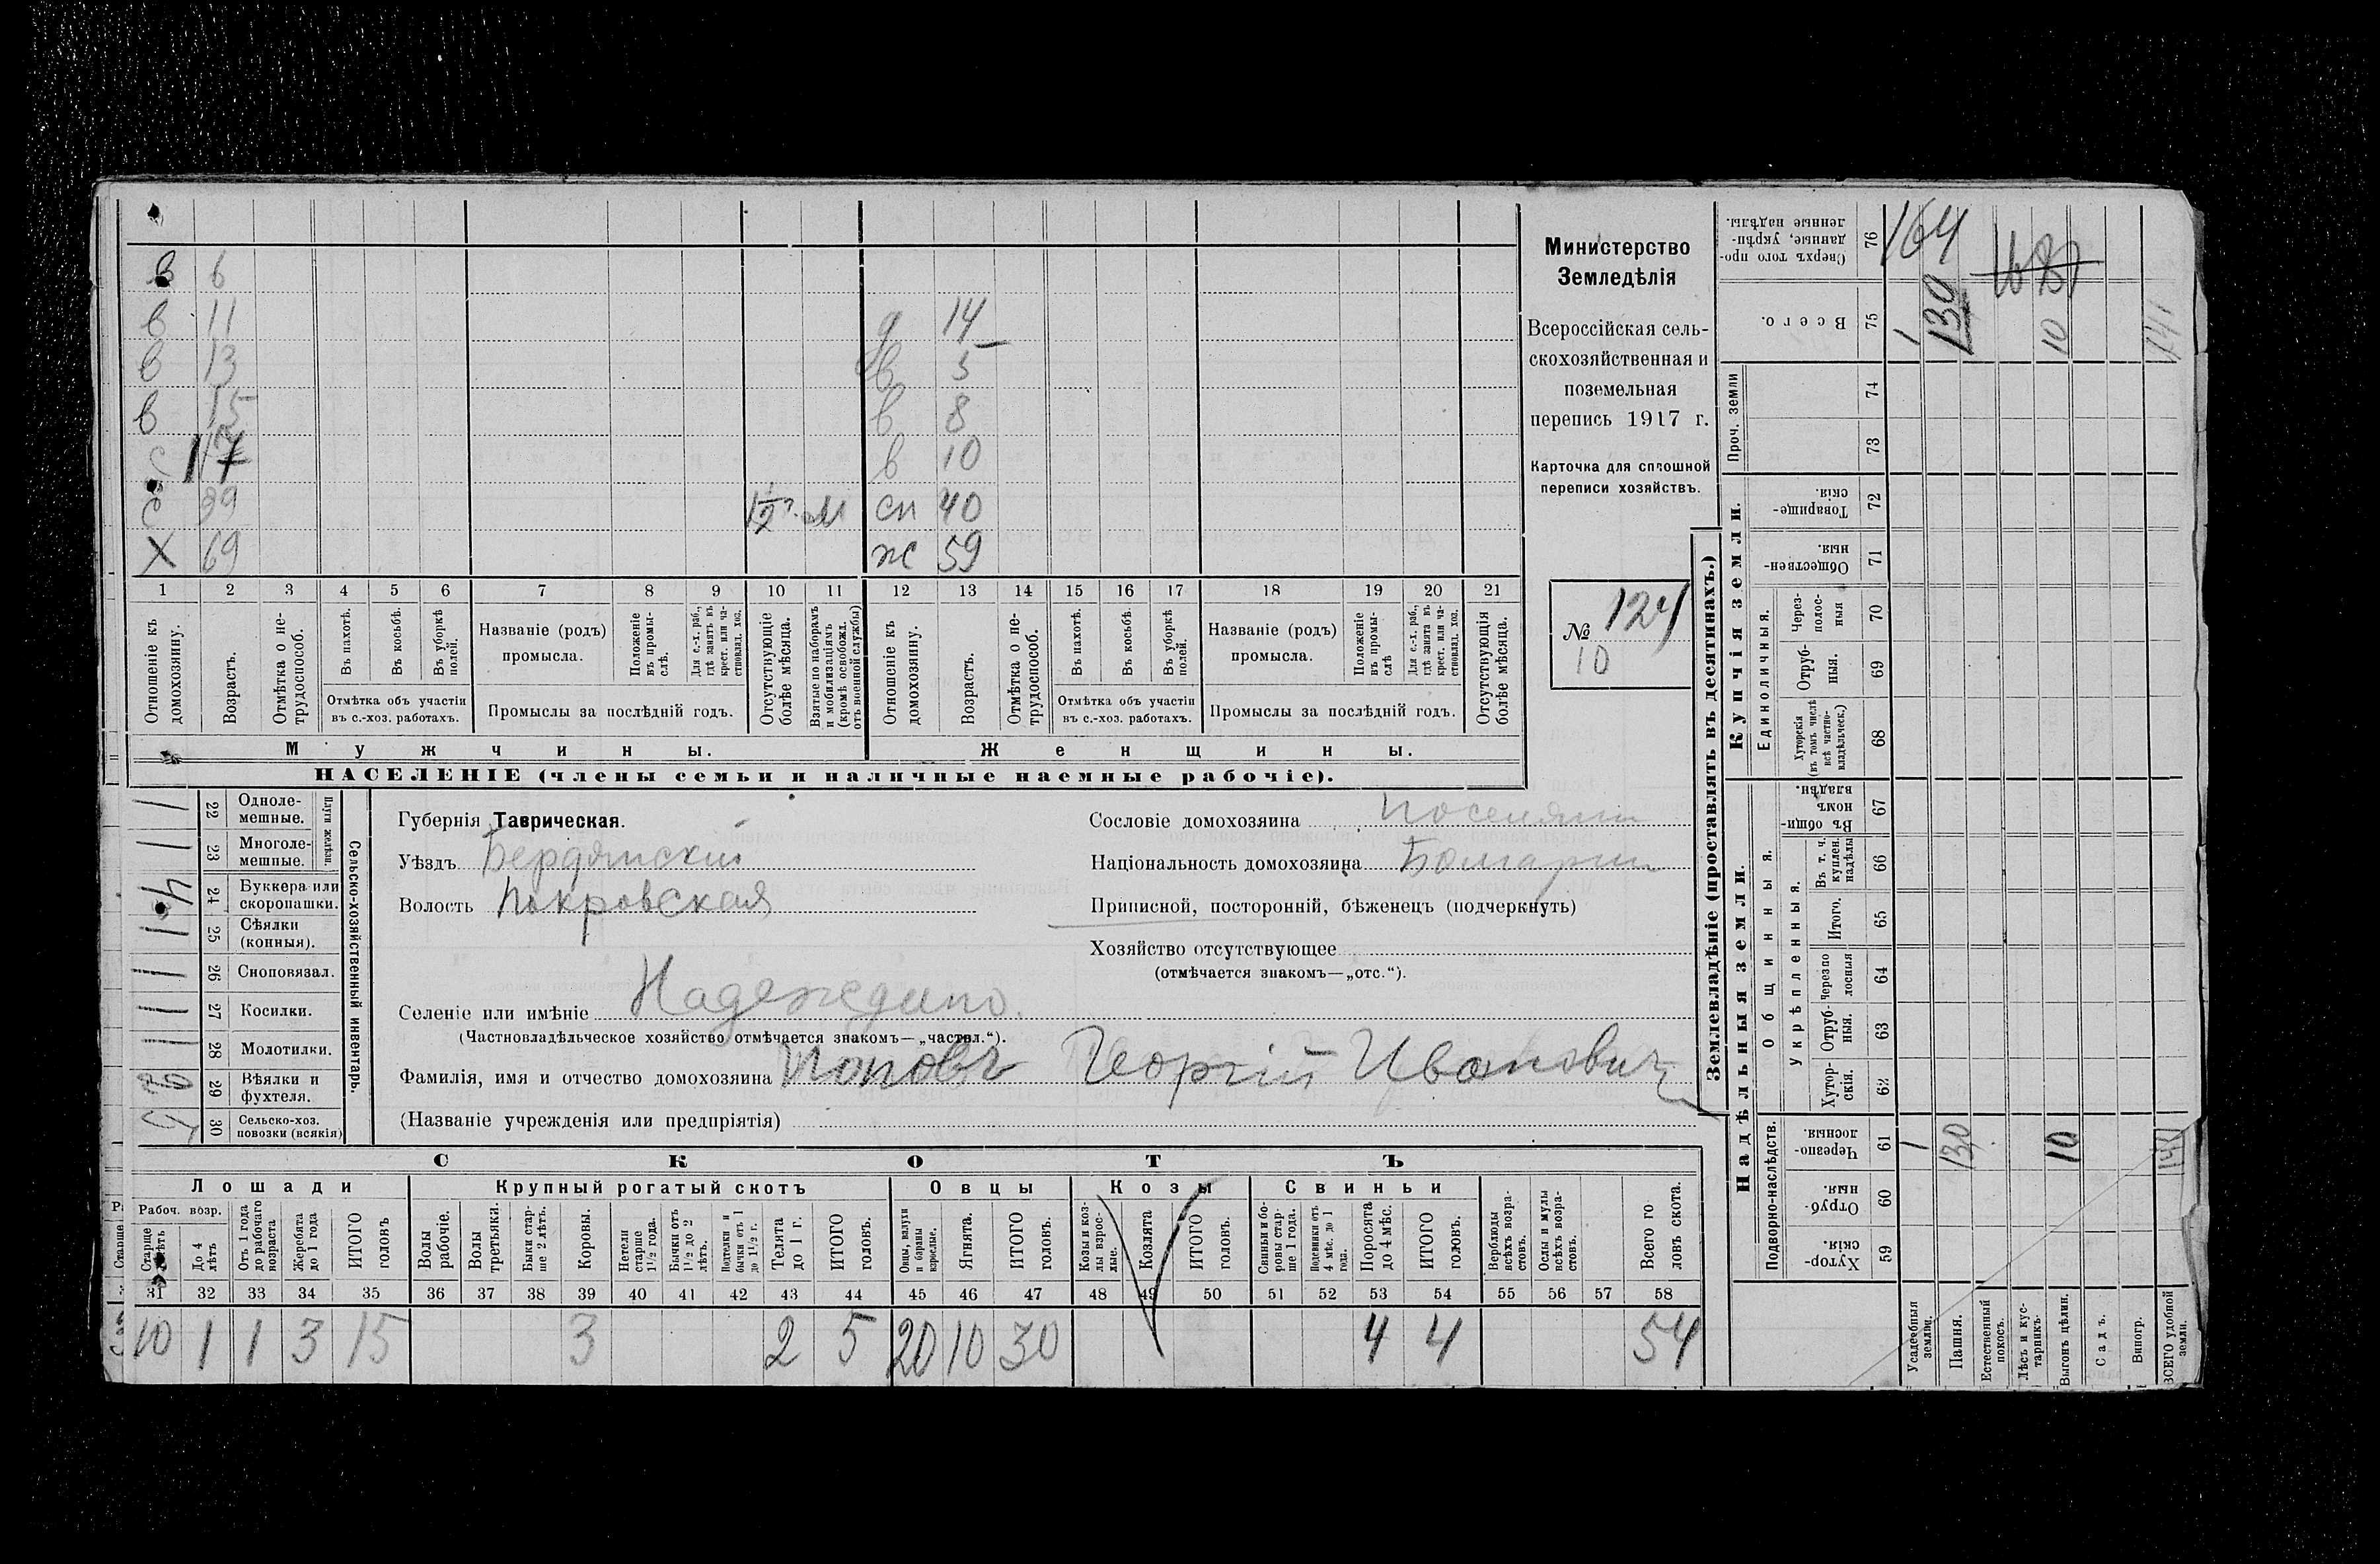 Министерство
Земледѣлія
Всероссійская сель-
скохозяйственная и
поземельная
перепись 1917 г.
Карточка для сплошной
переписи хозяйствъ.
№ 124
10
в 6
в 11 д 14
в 13 в 5
в 15 в 8
с 17 в 10
с 39 м сн 40
Х 69 ж 59
1 2 3 4 5 6 7 8 9 10 11 12 13 14 15 16 17 18 19 20 21
Отношеніе къ домохозяину.
Возрастъ.
Отмѣтка о не-трудоспособ.
Въ пахотѣ.
Въ косьбѣ.
Въ уборкѣ полей.
Отмѣтка объ участіи
въ с.-хоз. работахъ.
Названіе (родъ)
промысла.
Положеніе въ промы-слѣ.
Для с.-х. раб., гдѣ занятъ въ крест. или ча-стновлад. хоз.
Промыслы за послѣдній годъ.
Отсутствующіе болѣе мѣсяца.
Взятые по наборамъ и мобилизаціямъ (кромѣ освобожд. отъ военной службы)
Отношеніе къ домохозяину.
Возрастъ.
Отмѣтка о не-трудоспособ.
Въ пахотѣ.
Въ косьбѣ.
Въ уборкѣ полей.
Отмѣтка объ участіи
въ с.-хоз. работахъ.
Названіе (родъ)
промысла.
Положеніе въ промы-слѣ
Для с.-х. раб., гдѣ занята въ крест. или ча-стновлад. хоз.
Промыслы за послѣдній годъ.
Отсутствующія болѣе мѣсяца.
Мужчины. Женщины.
НАСЕЛЕНІЕ (члены семьи и наличные наемные рабочіе).
Сельско-хозяйственный инвентарь.
Плуги желѣзн.
22 Одноле-мешные.
23 Многоле-мешные.
24 Буккера или скоропашки.
25 Сѣялки (конныя).
26 Сноповязал.
27 Косилки.
28 Молотилки.
29 Вѣялки и фухтеля.
30 Сельско-хоз. повозки (всякія)
Губернія Таврическая.
Уѣздъ Бердянскій
Волость Покровская
Селеніе или имѣніе Надеждино.
(Частновладѣльческое хозяйство отмѣчается знакомъ—„частвл.“).
Фамилія, имя и отчество домохозяина Поповъ Георгій Ивановичъ
(Названіе учрежденія или предпріятія)
Сословіе домохозяина поселянин
Національность домохозяина Болгарин
Приписной, посторонній, бѣженецъ (подчеркнуть)
Хозяйство отсутствующее
(отмѣчается знакомъ—„отс.“).
СКОТЪ
Лошади Крупный рогатый скотъ Овцы Козы Свиньи
Рабоч. возр.
Старше
До 4 лѣтъ
Отъ 1 года до рабочаго возраста
Жеребята до 1 года
ИТОГО головъ
Волы рабочіе.
Волы третьяки.
Быки стар-ше 2 лѣтъ.
Коровы.
Нетели старше 1½ года.
Бычки отъ 1½ до 2 лѣтъ.
Подтелки и бычки отъ 1 до 1½ г.
Телята до 1 г.
ИТОГО головъ.
Овцы, валухи и бараны взрослые.
Ягнята.
ИТОГО головъ.
Козы и коз-лы взрос-лые.
Козлята
ИТОГО головъ.
Свиньи и бо-ровы стар-ше 1 года.
Подсвинки отъ 4 мѣс. до 1 года.
Поросята до 4 мѣс.
ИТОГО головъ.
Верблюды всѣхъ возра-стовъ.
Ослы и мулы всѣхъ возра-стовъ.
Всего го ловъ скота.
31 32 33 34 35 36 37 38 39 40 41 42 43 44 45 46 47 48 49 50 51 52 53 54 55 56 57 58
10 1 1 3 15 3 2 5 20 10 30 4 4 54
Землевладѣніе (проставлять въ десятинахъ.)
Купчія земли.
Проч. земли
Единоличныя.
Надѣльныя земли.
Общинныя.
Укрѣпленныя.
Подворно-наслѣдств.
76 Сверхъ того про-данные, укрѣп-ленные надѣлы. 164
75 Всего. 1 130 10 141
74
73
72 Товарище-скія.
71 Обществен-ныя.
70 Через-полос-ныя
69 Отруб-ныя.
68 Хуторскія (въ томъ числѣ всѣ частно-владѣльческ.)
67 Въ общин-номъ владѣн.
66 Въ т. ч. куплен. надѣлы
65 Итого.
64 Черезпо лосныя
63 Отруб-ныя.
62 Хутор-скія.
61 Черезпо-лосныя. 1 130 10 141
60 Отруб-ныя.
59 Хутор-скія.
Усадебныя земли.
Пашня.
Естественный покосъ.
Лѣсъ и кус-тарникъ.
Выгонъ цѣлин.
Садъ.
Виногр.
ВСЕГО удобной земли.